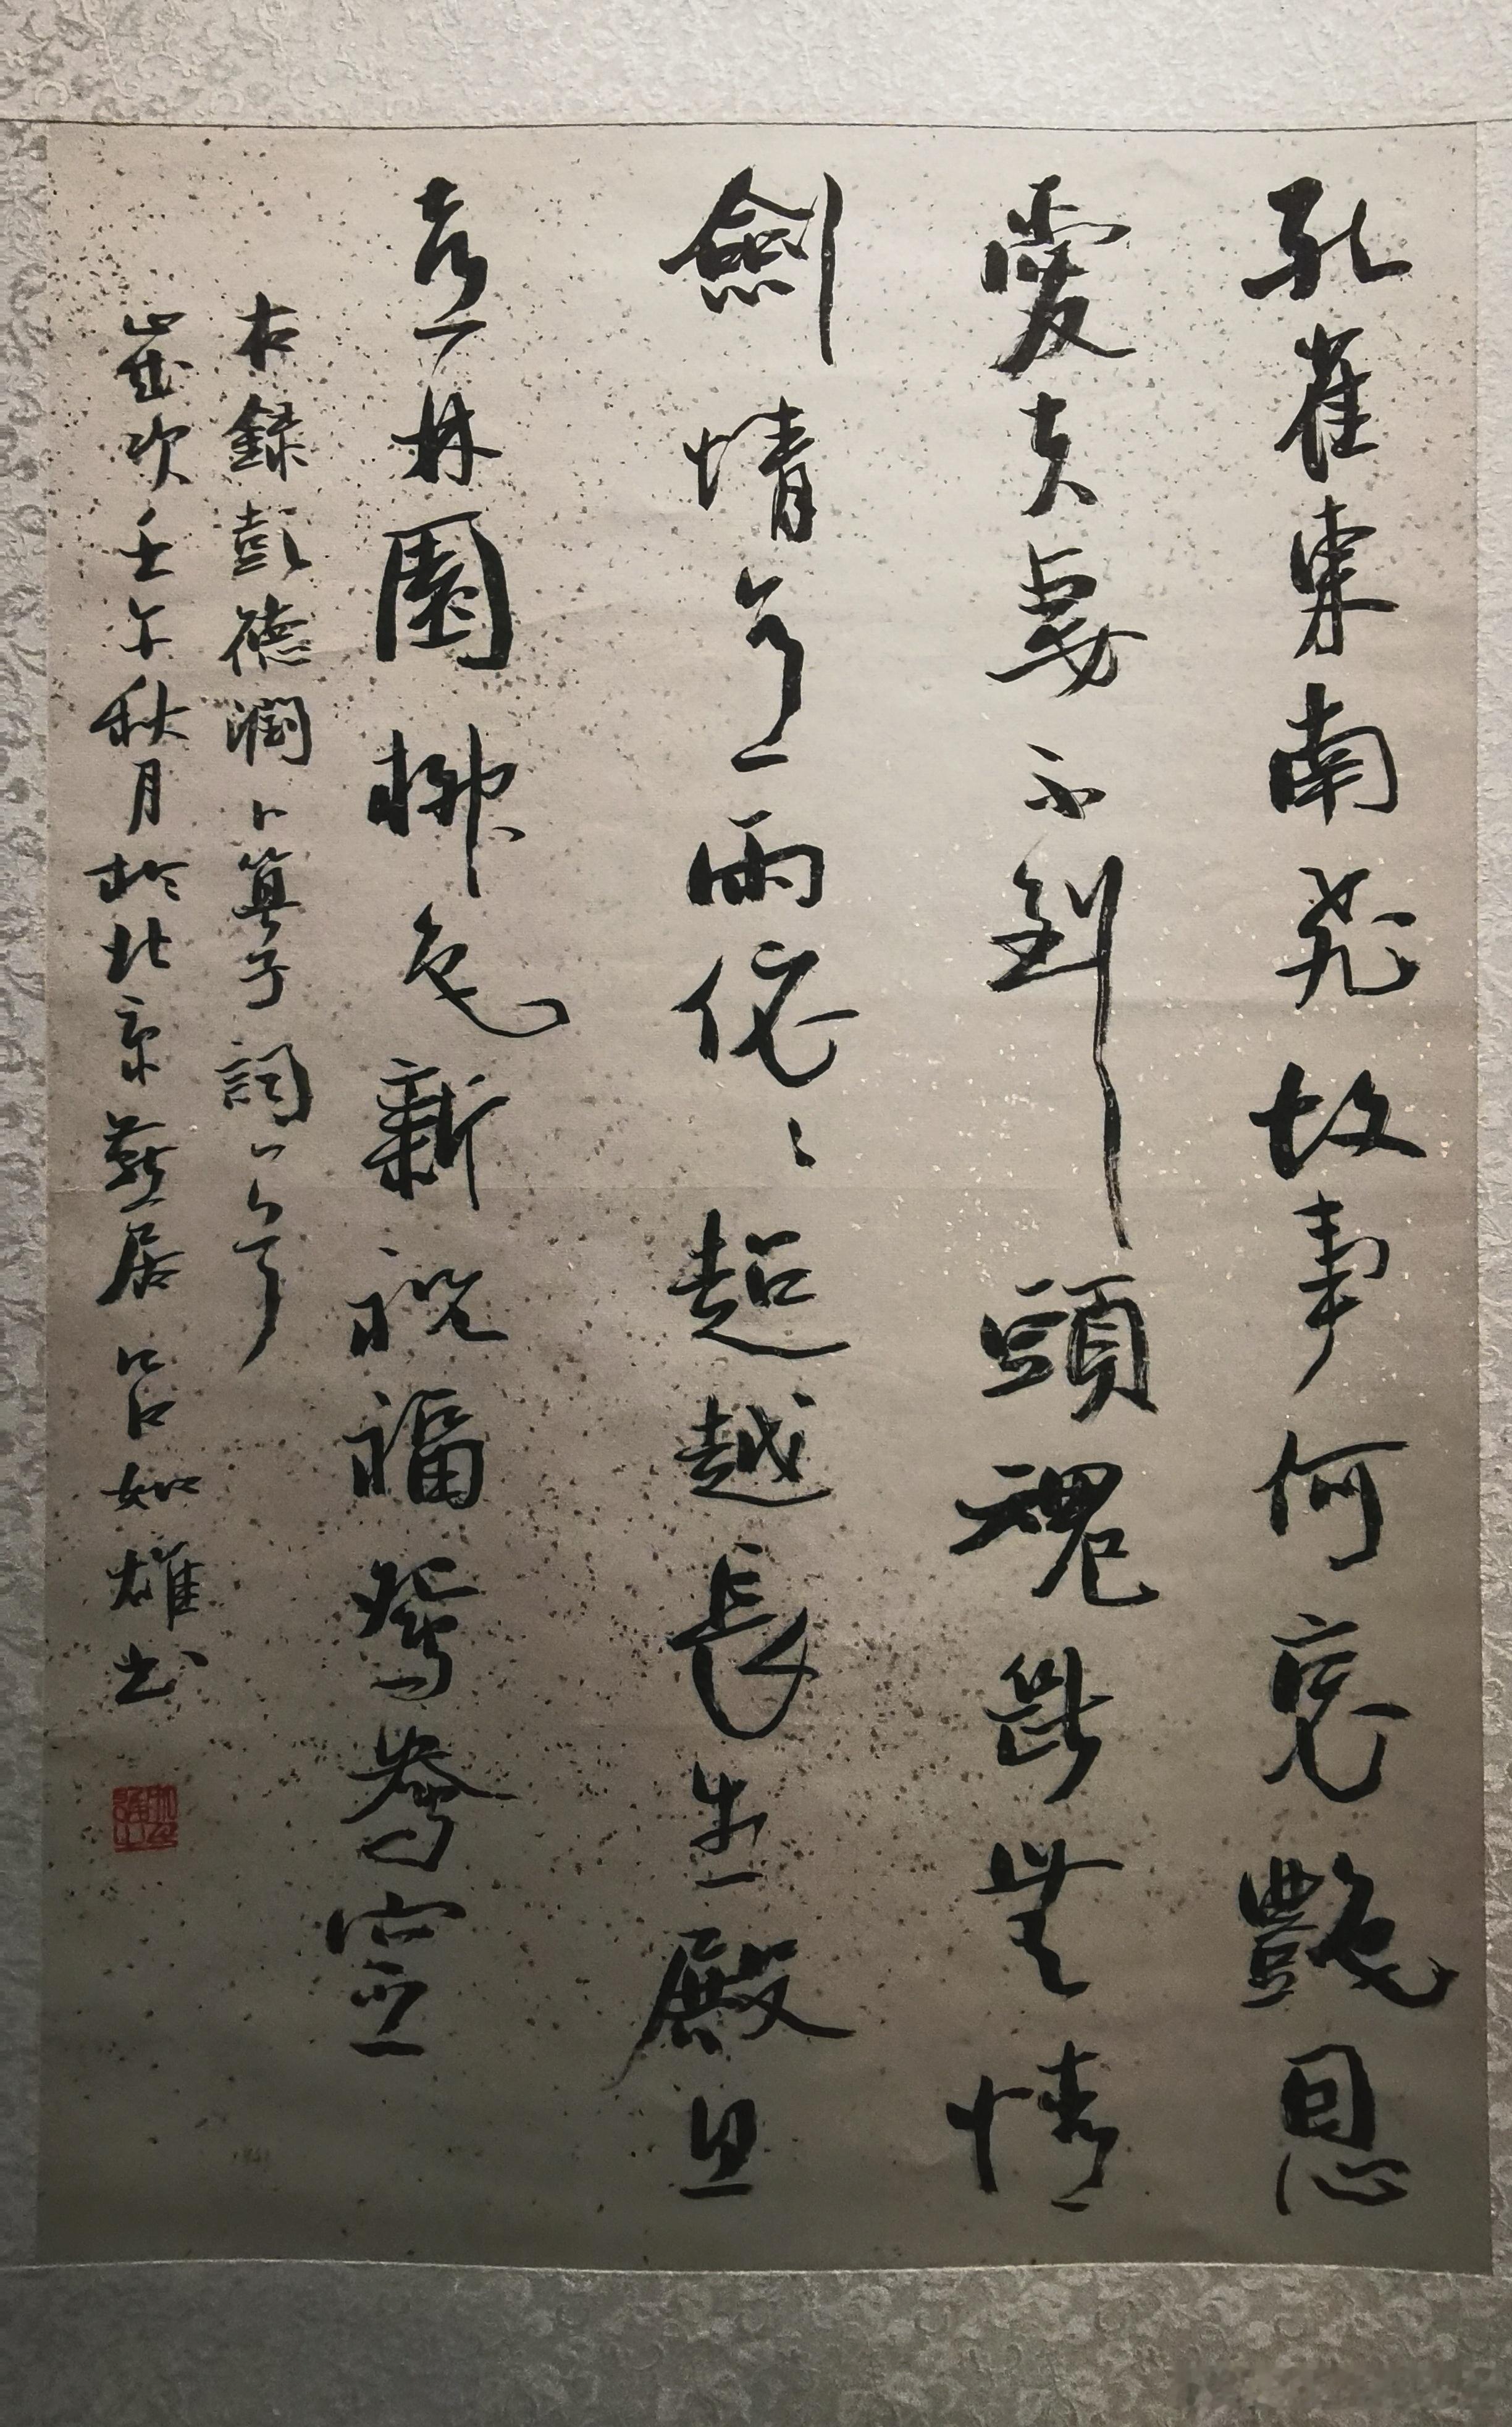 孔雀東南飛故事何哀艷恩
愛夫妻不到頭魂斷無情
劍情兩依依超越長生殿且
喜林園柳色新祝福鴛鴦宴
右錄彭德潤卜算子詞一首
歲次壬午秋月於北京燕居呂如雄書